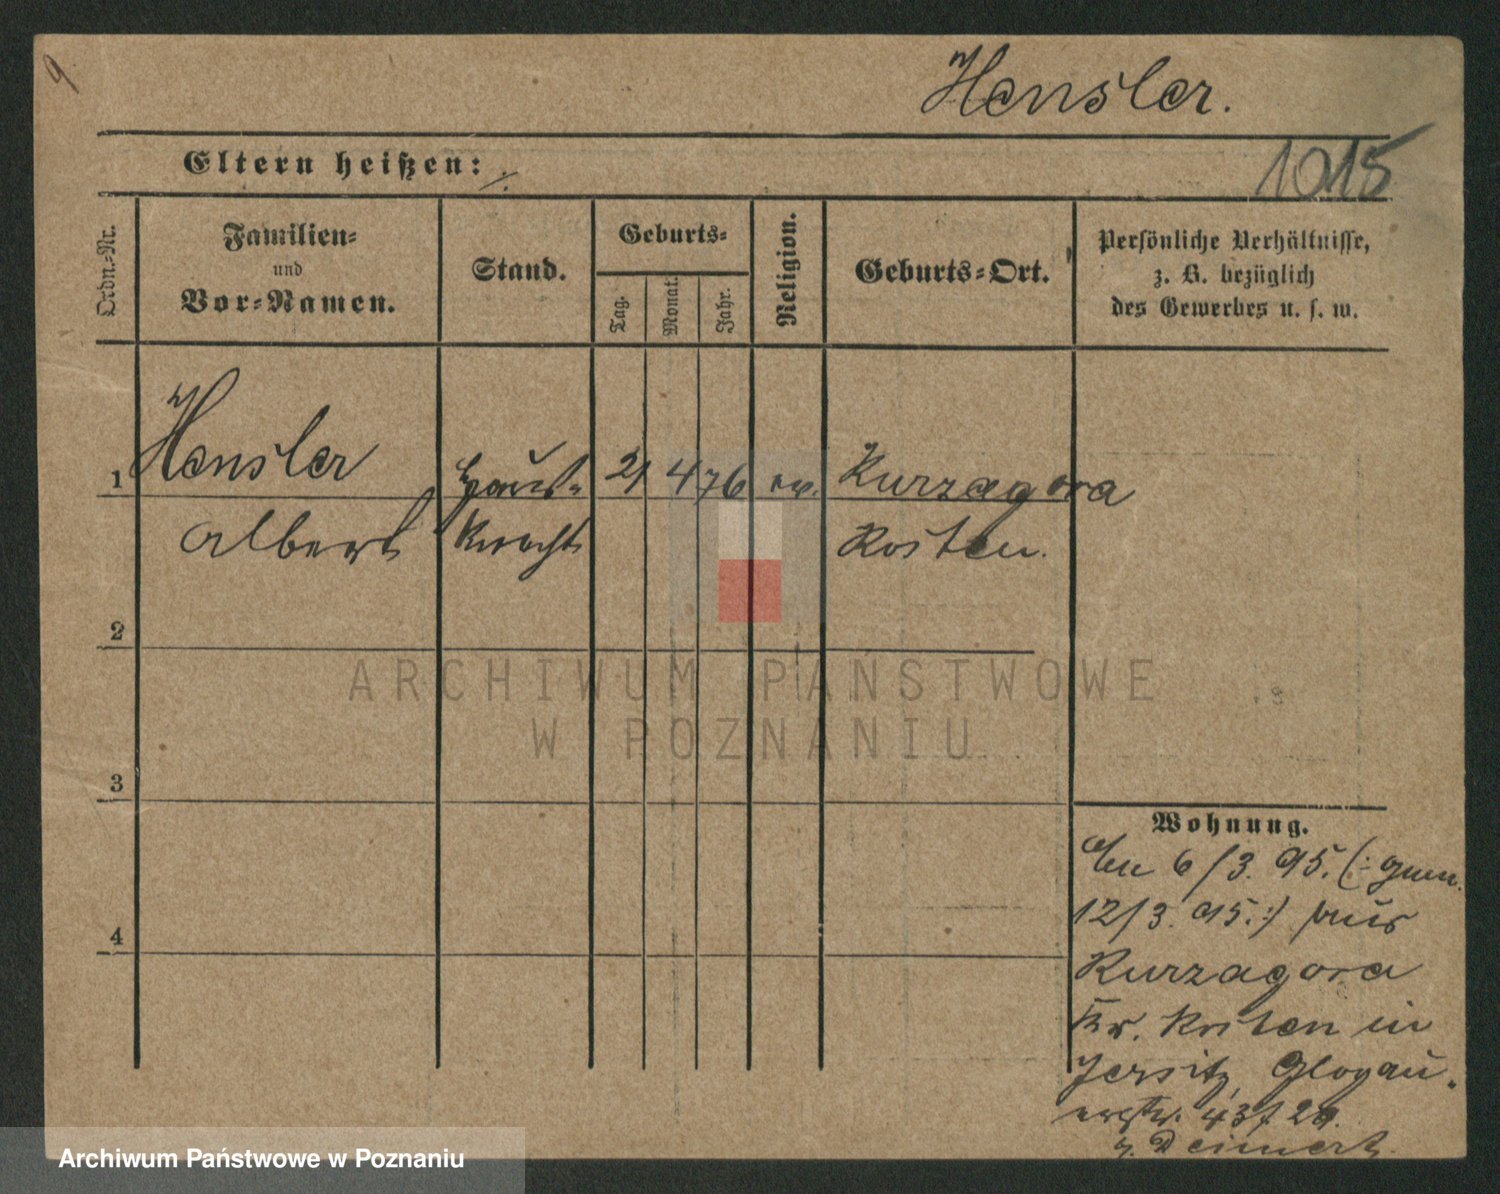 9
Hensler.
Eltern heißen: ./.
1015
Ordn.-Nr.
Familien-
und
Vor-Namen.
Stand.
Geburts-
Tag.
Monat.
Jahr.
Religion.
Geburts-Ort.
Persönliche Verhältnisse,
z. B. bezüglich
des Gewerbes u. s. w.
1
Hensler
Albert
Haus-
knecht
21
4
76
ev.
Kurzagora
Kosten.
2
3
4
Wohnung.
6/3. 95. (: gem.
12/3. 95. :) aus
Kurzagora
Kr. Kosten in
Jersitz, Glogau-
erstr. 43
ARCHIWUM PAŃSTWOWE
W POZNANIU
Archiwum Państwowe w Poznaniu